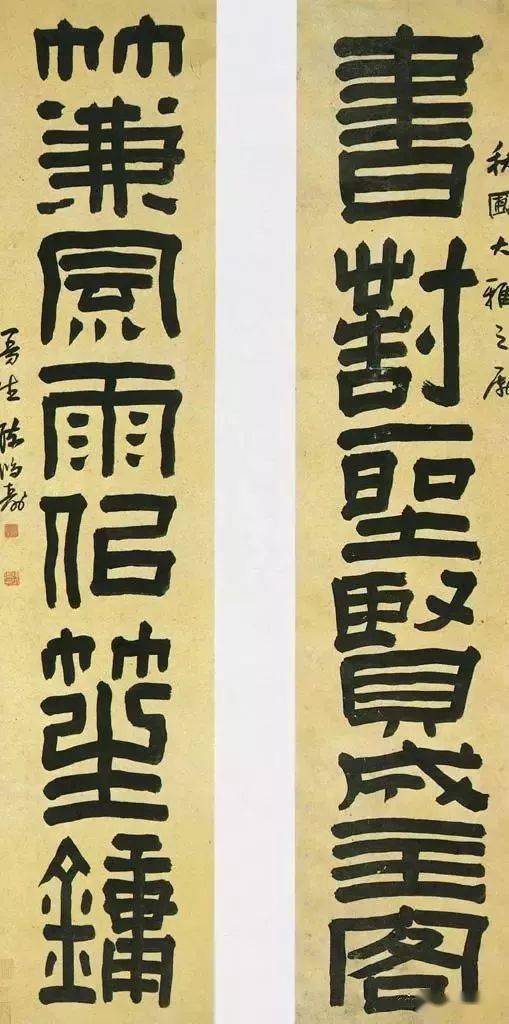 秋圃大雅之屬
書對聖賢成主客
竹兼風雨佀笙鏞
曼生陳鴻壽